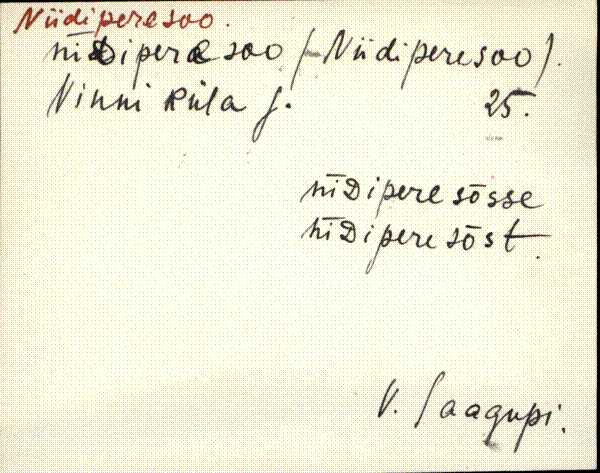 Niidiperesoo.
nīDipere soo (- Niidiperesoo).
Vinni küla J. 25.
nīDipere sōsse
nīDipere sōst.
V. Jaagupi.